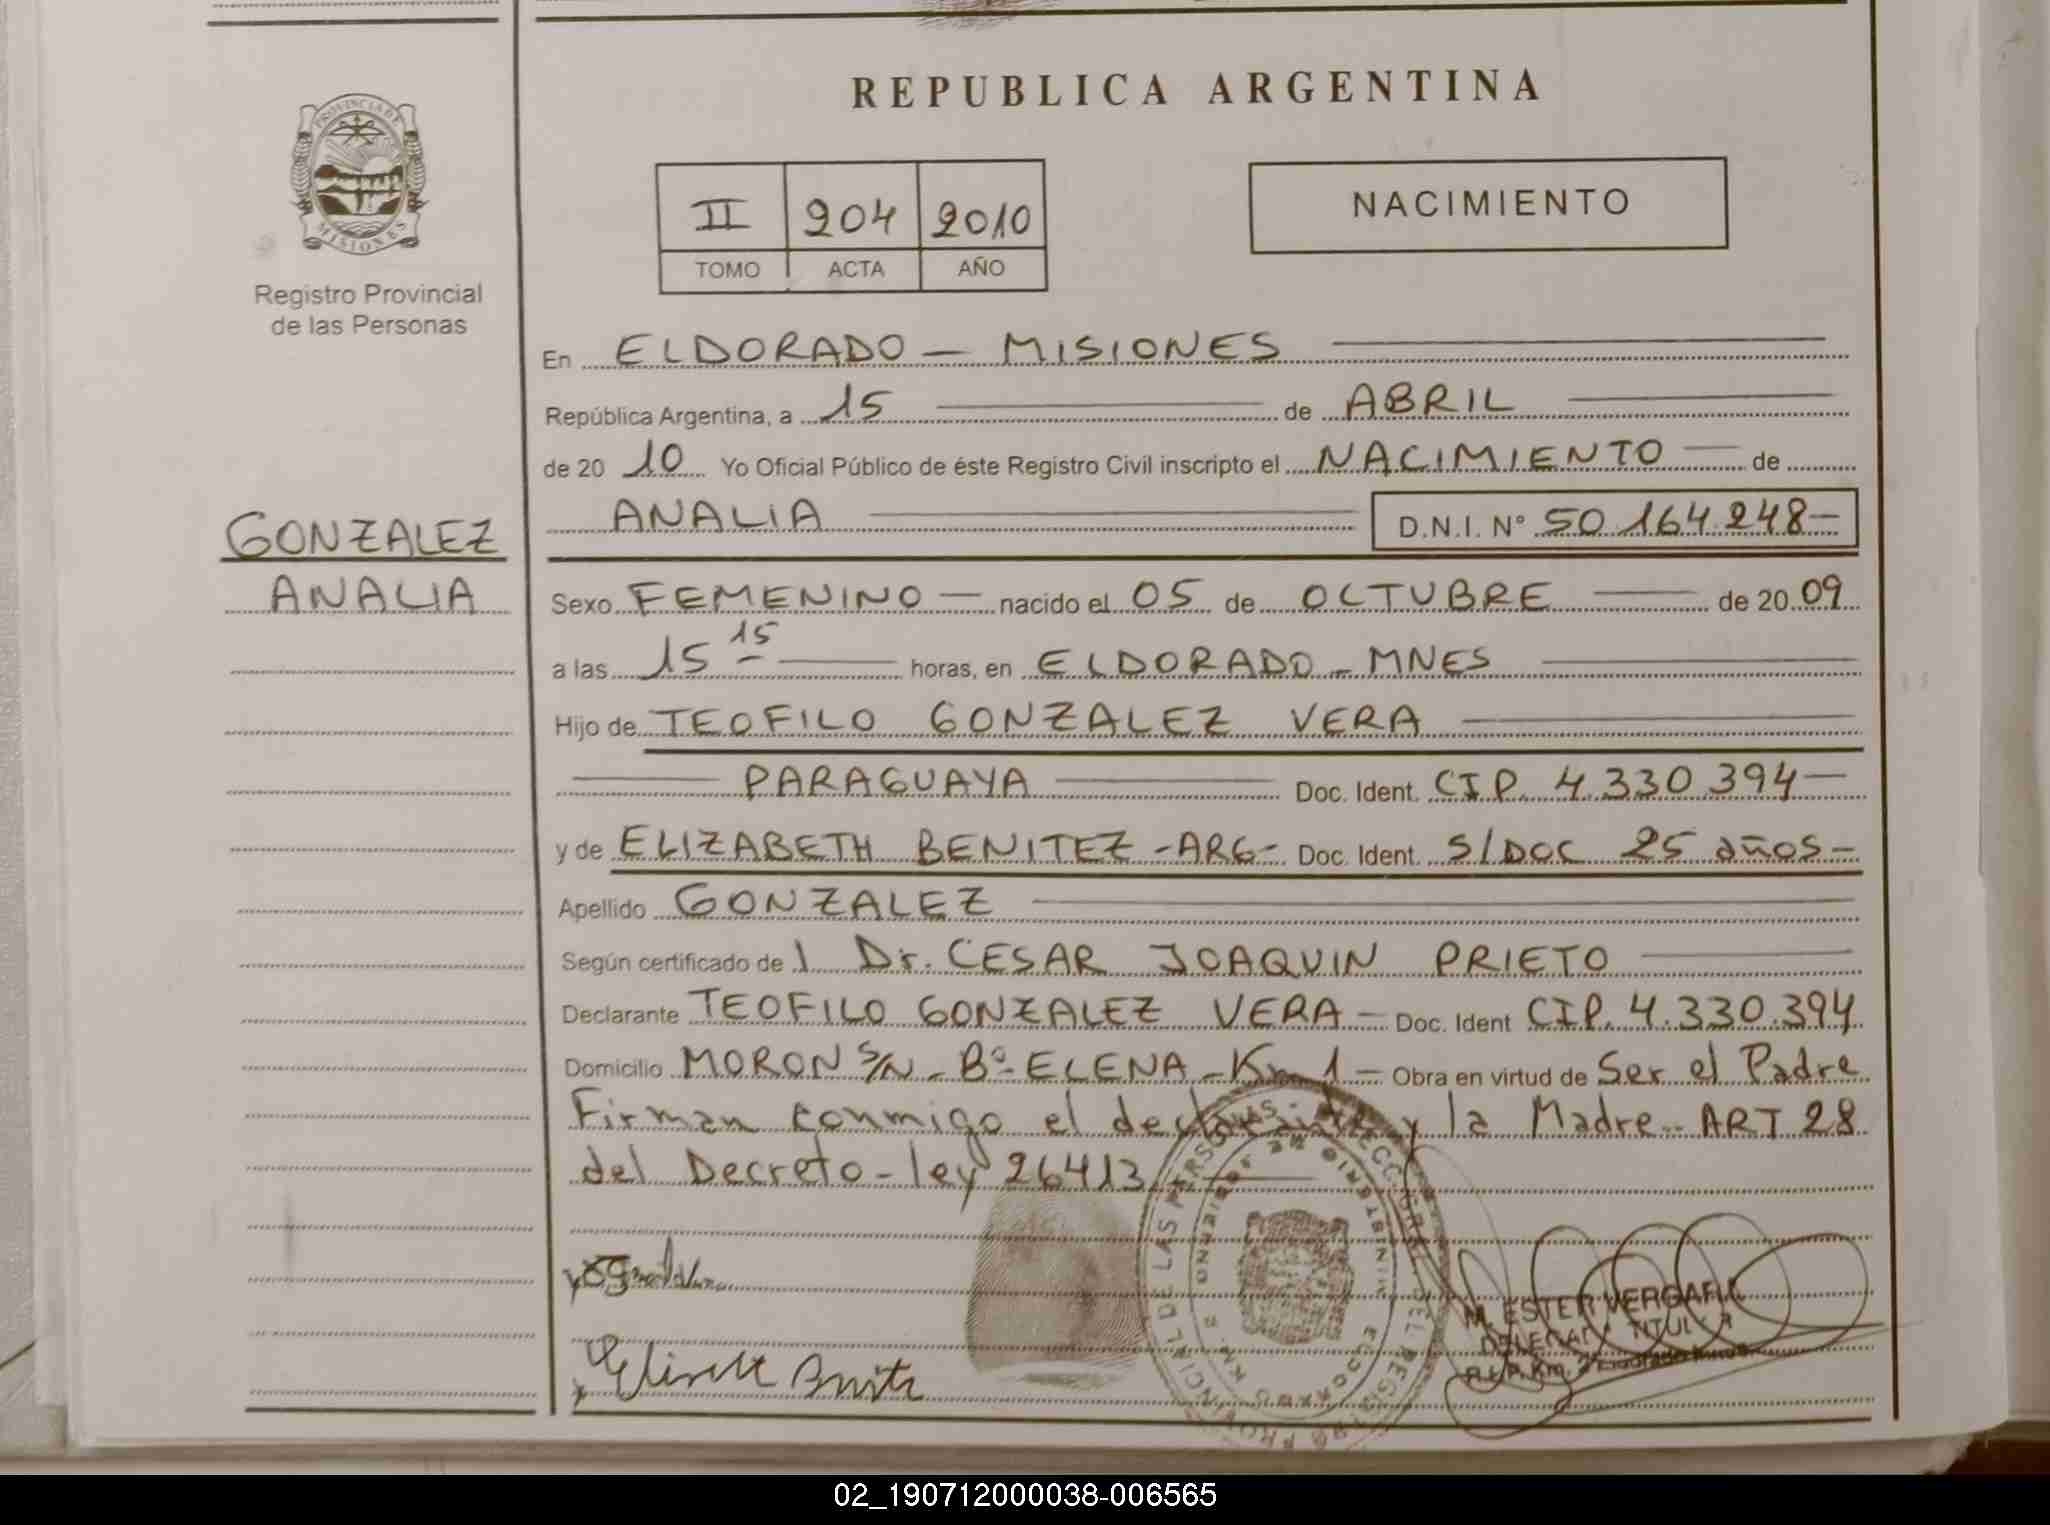 REPUBLICA ARGENTINA
PROVINCIA DE MISIONES
Registro Provincial
de las Personas
II 204 2010
TOMO ACTA AÑO
NACIMIENTO
En ELDORADO - MISIONES
República Argentina, a 15 de ABRIL
de 20 10 Yo Oficial Público de éste Registro Civil inscripto el NACIMIENTO de
ANALIA D.N.I. Nº 50.164.248-
GONZALEZ
ANALIA
Sexo FEMENINO - nacido el 05 de OCTUBRE de 20 09
a las 15 15 horas, en ELDORADO - MNES
Hijo de TEOFILO GONZALEZ VERA
PARAGUAYA Doc. Ident. CIP. 4.330.394-
y de ELIZABETH BENITEZ -ARG- Doc. Ident. S/DOC 25 años-
Apellido GONZALEZ
Según certificado de l Dr. CESAR JOAQUIN PRIETO
Declarante TEOFILO GONZALEZ VERA - Doc. Ident CIP. 4.330.394
Domicilio MORON S/N - Bº ELENA - Km 1 - Obra en virtud de Ser el Padre
Firman conmigo el declarante y la Madre - ART 28
del Decreto - ley 26413
M. ESTER
02_190712000038-006565